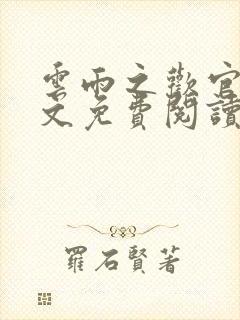 雲雨之歡官
文免費閱讀
羅石賢著